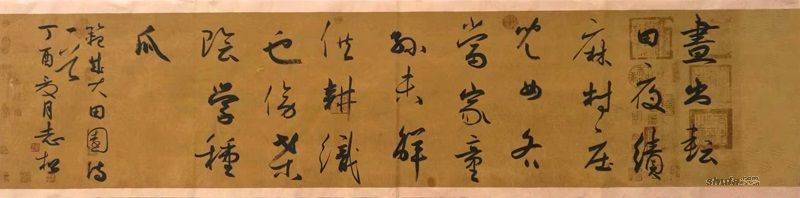 晝出耘
田夜績
麻村庄
兒女各
當家童
孫未解
供耕織
也傍桑
陰学種
瓜
範成大田園詩
一首
丁酉夏月志松